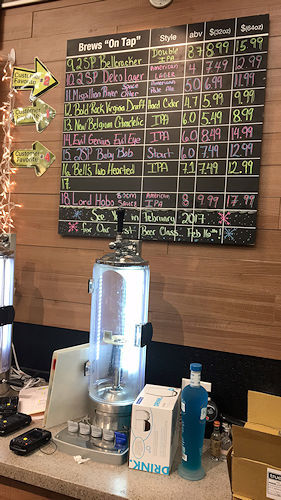 Brews "On Tap" Style abv $(32oz) $(64oz)
9. 2SP Bellcracker Double IPA 8.7 8.99 15.99
10. 2SP Delco Lager American LAGER 4 7.49 12.99
11. Space American Pale Ale 5.0 6.99 11.99
12. Bold Rock Virginia Draft Hard Cider 4.7 5.99 9.99
13. New Belgium IPA 6.0 5.49 8.99
14. Evil Genius Evil Eye IPA 6.0 8.49 14.99
15. 2SP Baby Bob Stout 6.0 7.49 12.99
16. Bell's Two Hearted IPA 7.1 7.49 12.99
17.
18. Lord Hobo Boom Sauce American IPA 8 9.99 17.99
See in February 2017
For Our Beer Class... Feb 16th!
Customer Favorite
Customer
Customer Favorite
DRINK